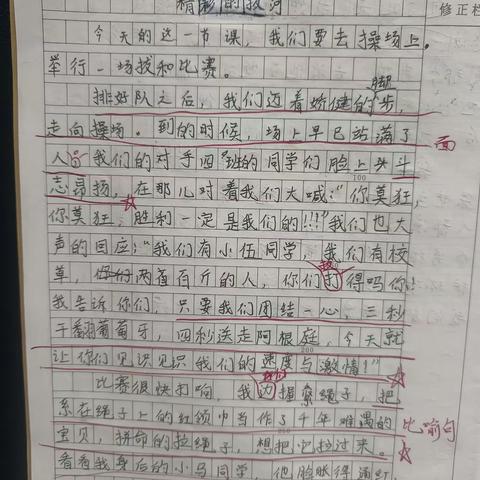 精彩的拔河
修正栏
今天的这一节课，我们要去操场上。
举行一场拔和比赛。
脚
排好队之后，我们迈着矫健的步，
走向操场。到的时候，场上早已站满了
面
人我们的对手四班的同学们脸上头斗
志昂扬，在那儿对着我们大喊："你莫狂，
你莫狂，胜利一定是我们的!!!"我们也大
声的回应："我们有小伍同学，我们有校
草，两百百斤的人，你们打得吗你!
我告诉你们，只要我们团结一心，三秒
干翻葡萄牙，四秒送走阿根庭，今天就
让你们见识见识我们的速度与激情!"
比赛很快打响，我边握紧绳子，把
系在绳子上的红领巾当作了千年难遇的
比喻句
宝贝，拼命的拉绳子，想把它拉过来。
看看我身后的小马同学，他脸胀得通红，
100
200